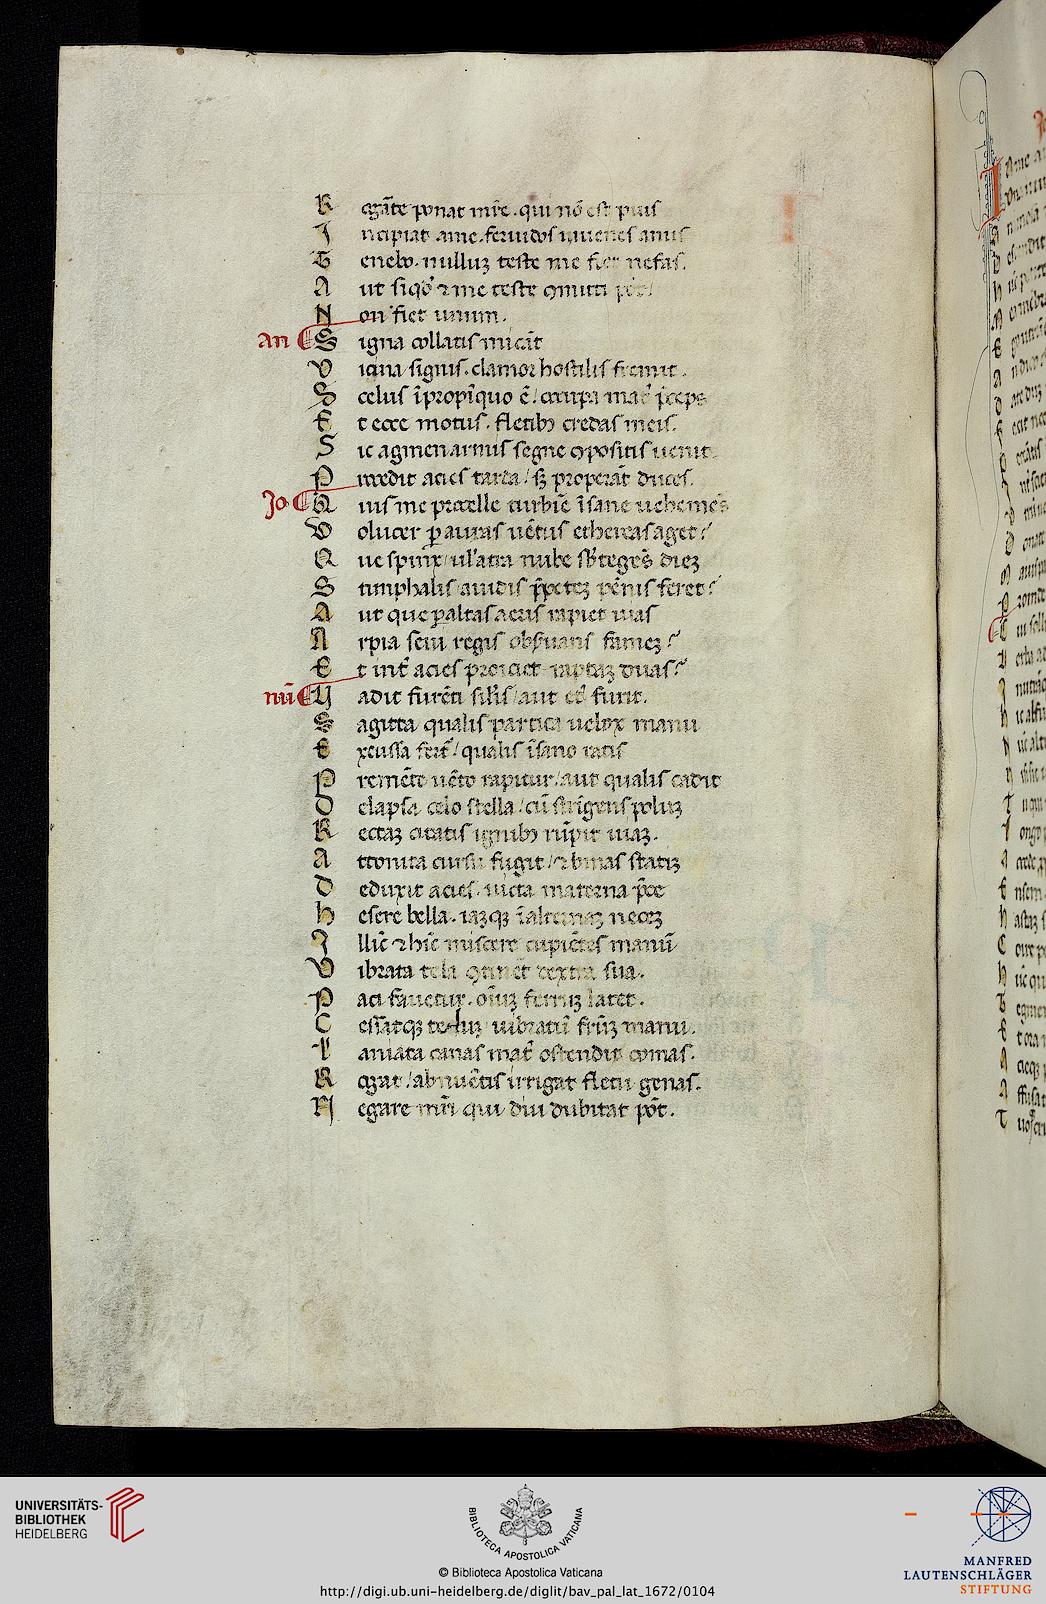 R ogãte ponat mr̃e. qui nõ est pius
I ncipiat a me. feruidos iuuenes anus
T enebo. nulluȝ teste me fiet nefas.
A ut siqd̾ ⁊ me teste ꝯmitti põt/
N on fiet unum.
an S igna collatis micãt
V icina signis. clamor hostilis fremit.
S celus ĩpropĩquo ẽ/ occupa mat̾ p̃ces
E t ecce motus. fletibȝ credas meis.
S ic agmen armis segne ꝯpositis uenit.
P rocedit acies tarda/ sȝ properãt duces.
Jo Q uis me procelle turbiẽ ĩsane uehemẽs
V olucer ꝑ auras uẽtus ethereas aget?
Q ue spinx/ ul̾ atra nube sb̾tegẽs dieȝ
S timphalis auidis p̃peteȝ pẽnis feret?
A ut que ꝑ altas aeris rapiet uias
A rpia seui regis obseruans fameȝ?
E t int̾ acies proiciet raptaȝ duas?
nũ V adit furẽti sil̾is/ aut et̾ furit.
S agitta qualis partica uelox manu
E xcussa fert̾/ qualis ĩsano ratis
P remẽte uẽto rapitur/ aut qualis cadit
D elapsa celo stella/ cũ stĩgens poluȝ
R ectaȝ citatis ignibȝ rũpit uiaȝ.
A ttonita cursu fugit/ ⁊ binas statiȝ
D eduxit acies. uicta materna p̃ce
H esere bella. iaȝqȝ ĩ alternaȝ neceȝ
I llĩc ⁊ hĩc miscere cupiẽtes manũ
V ibrata tela ꝯtinẽt dextra sua.
P aci fauetur. oĩuȝ ferruȝ latet.
C essãtqȝ tectuȝ uibratũ fr̃uȝ manu.
L aniata canas mat̾ ostendit comas.
R ogat/ abnuẽtis irrigat fletu genas.
N egare mr̃i qui diu dubitat põt.
UNIVERSITÄTS-
BIBLIOTHEK
HEIDELBERG
BIBLIOTECA APOSTOLICA VATICANA
© Biblioteca Apostolica Vaticana
http://digi.ub.uni-heidelberg.de/diglit/bav_pal_lat_1672/0104
MANFRED
LAUTENSCHLÄGER
STIFTUNG